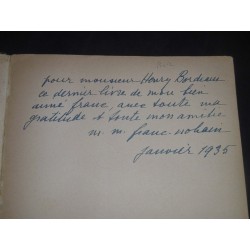 pour monsieur Henry Bordeaux
ce dernier livre de mon bien
aimé franc, avec toute ma
gratitude et toute mon amitié
m. m. franc-nohain
janvier 1935